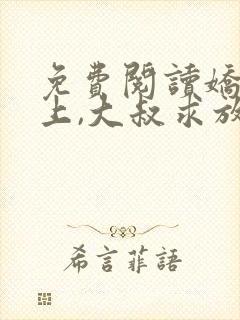 免費閱讀嬌
上,大叔求放
希言菲語